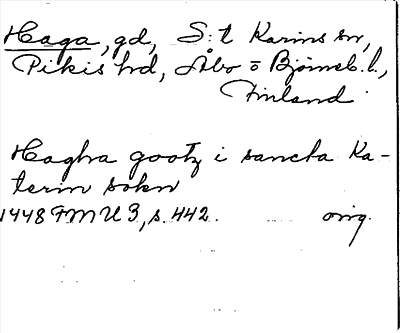 Haga, gd, S:t Karins sn,
Pikis hd, Åbo o Björneb. l.,
Finland
Hagha gootz i sancta Ka-
terin sokn
1448 FMU 3, s. 442. orig.